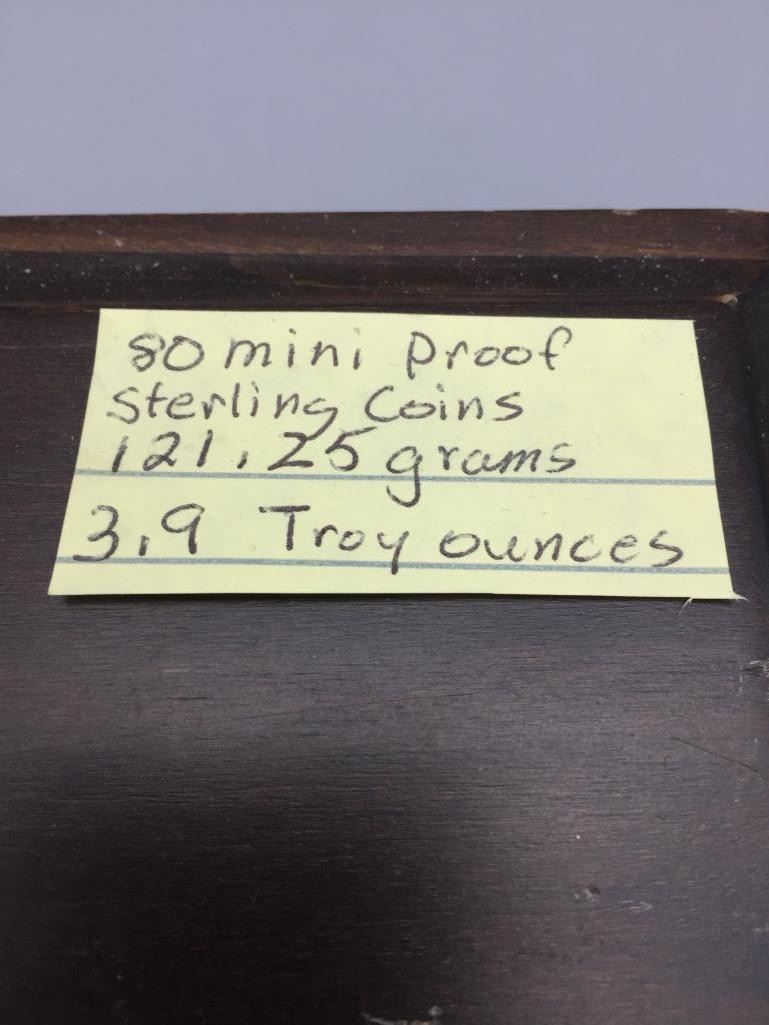 80 mini proof
Sterling Coins
121.25 grams
3.9 Troy ounces